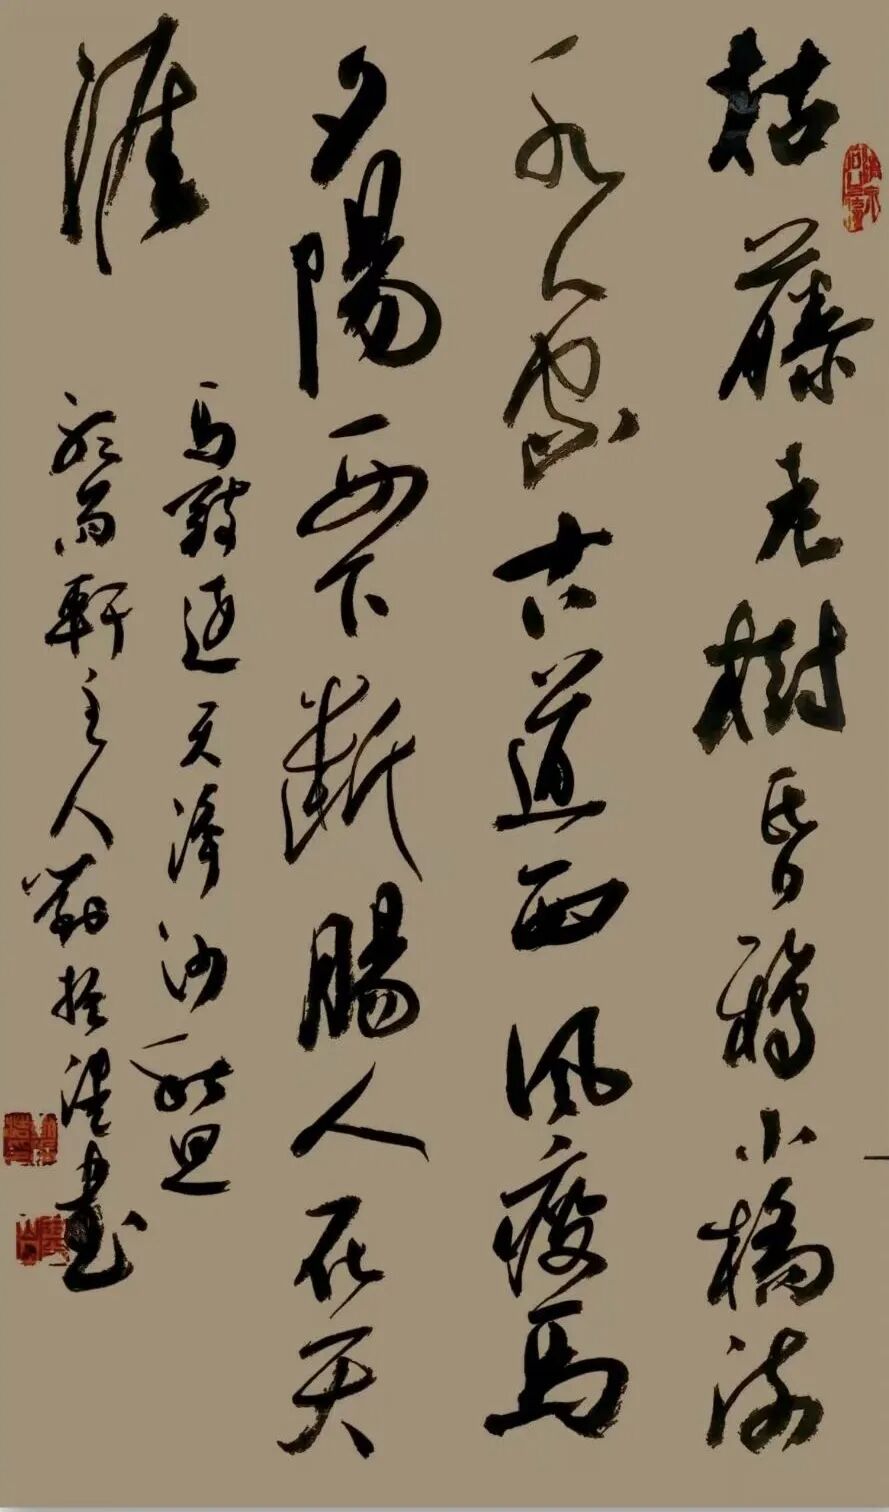 枯藤老樹昏鴉小橋流
水人家古道西風瘦馬
夕陽西下斷腸人在天
涯
馬致遠天淨沙秋思
雨軒主人書